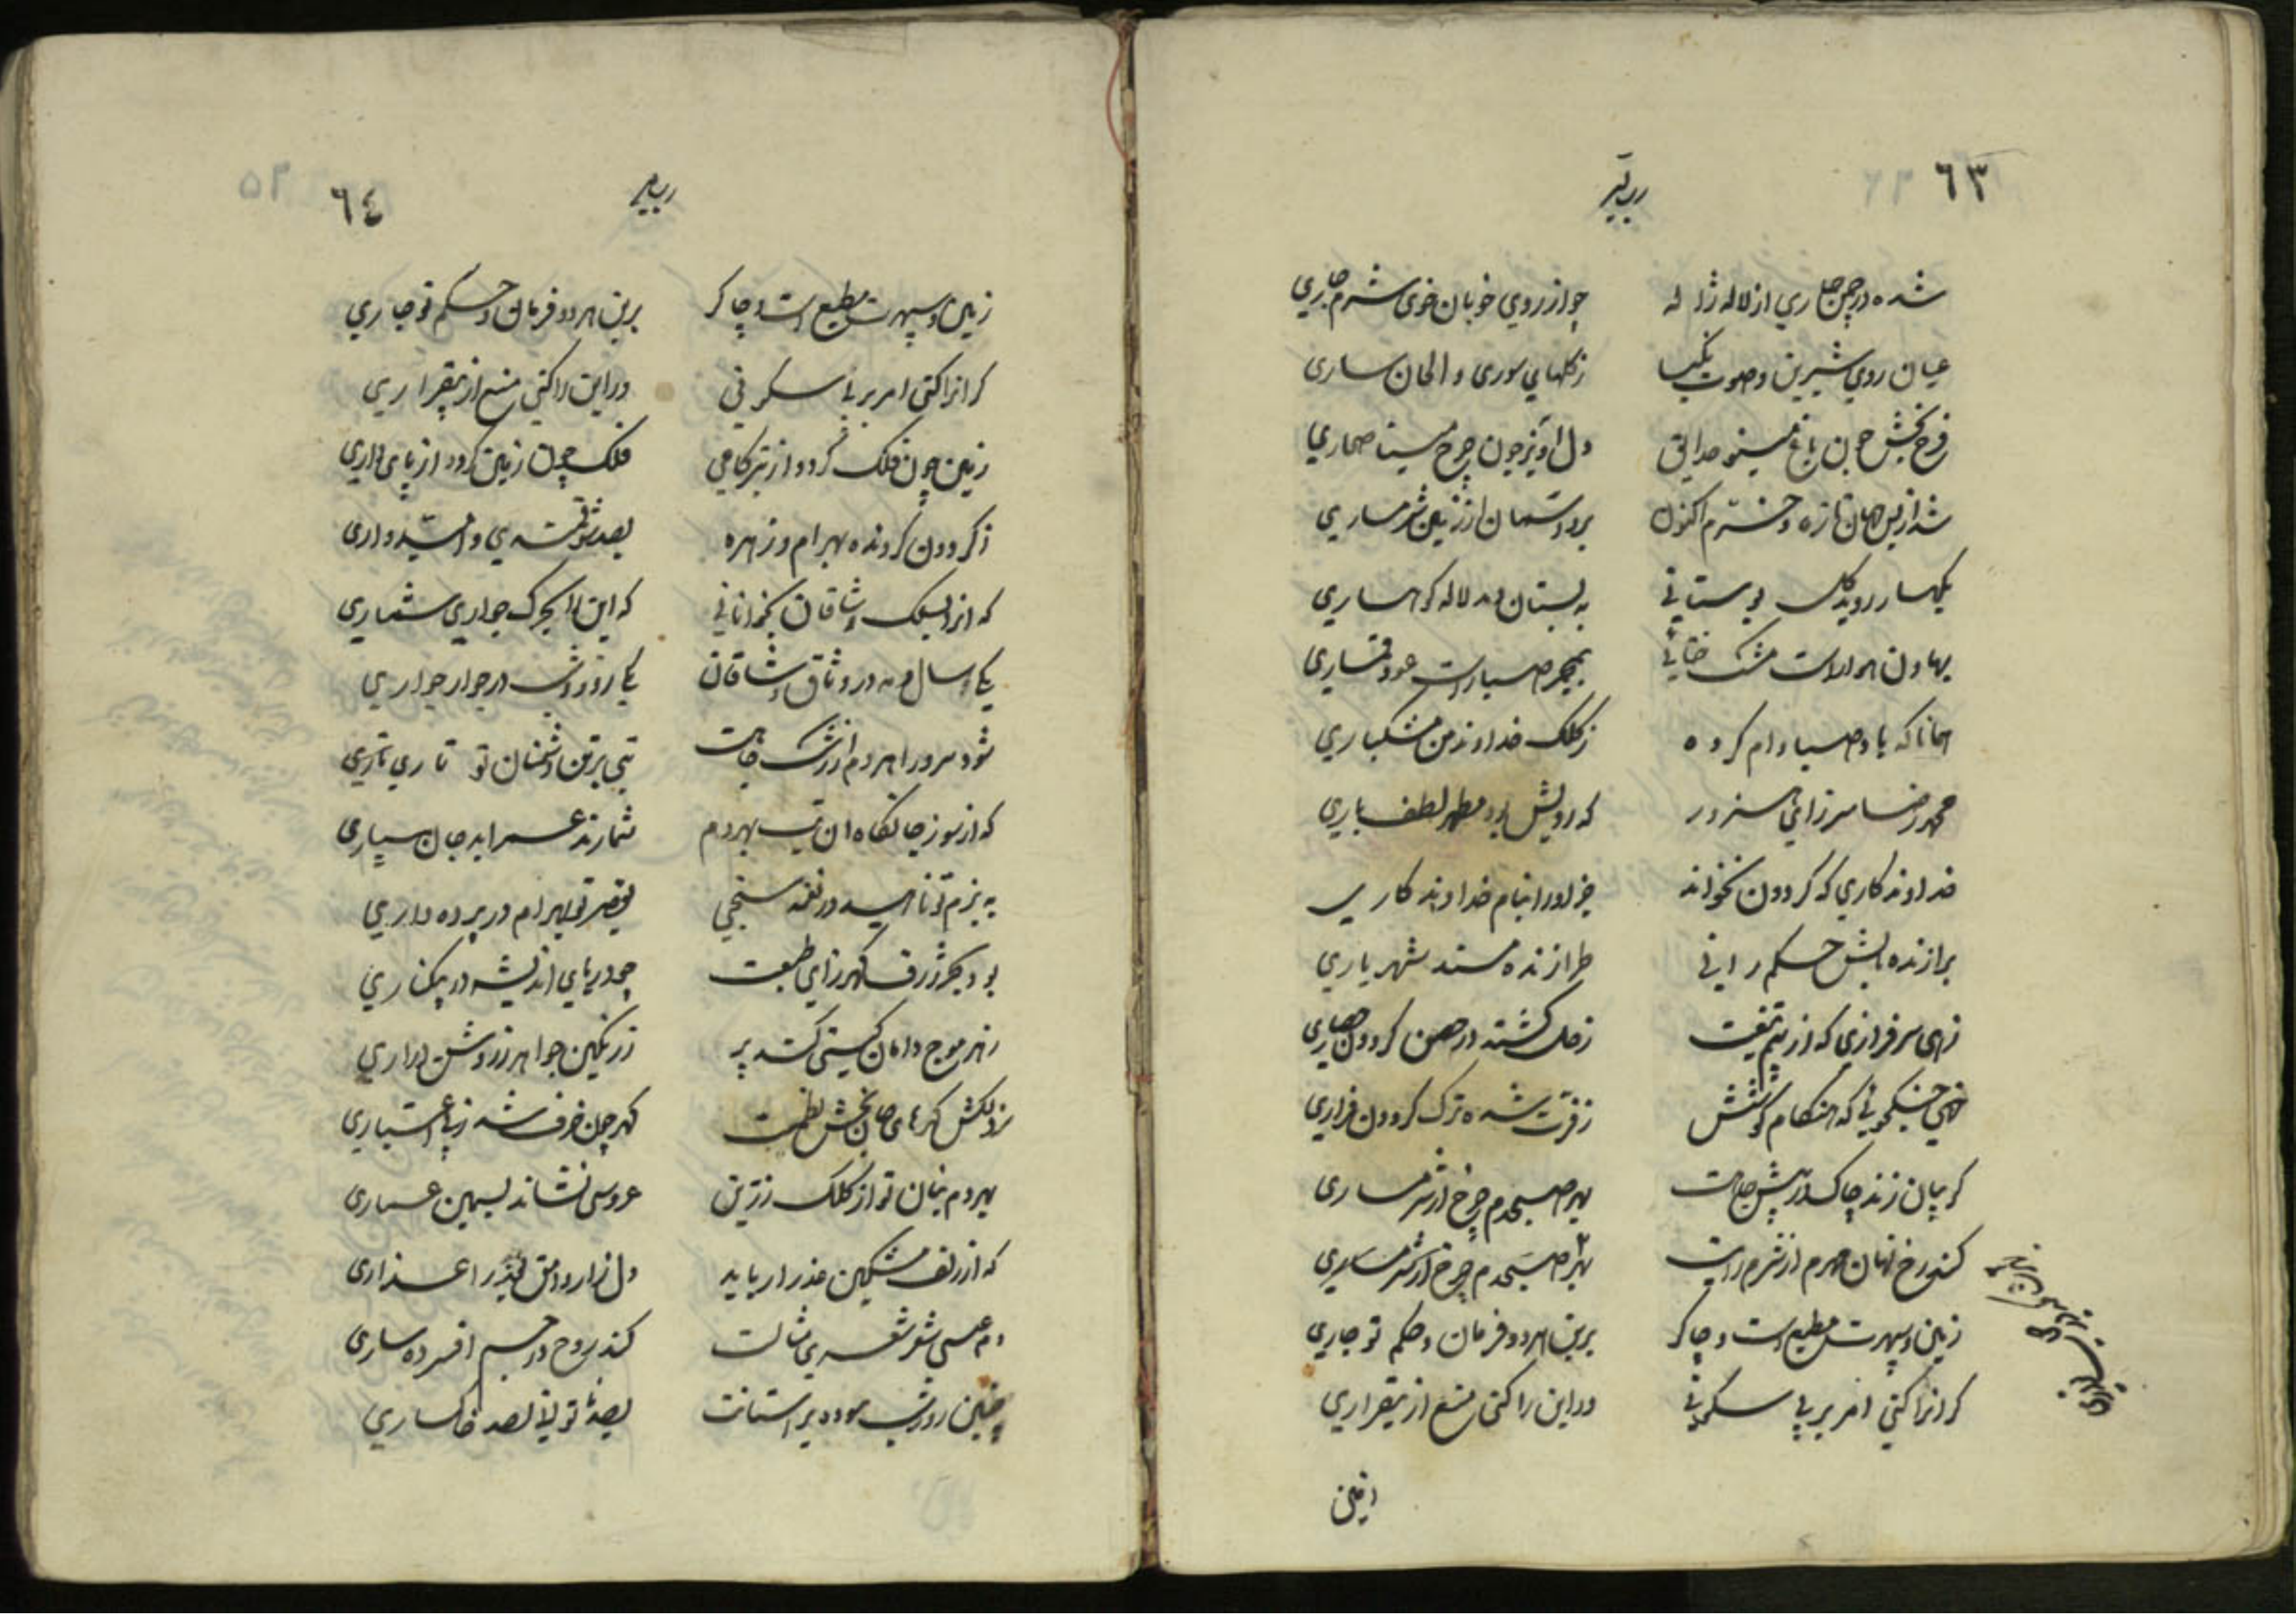 ٦٣
شده در چمن جاری از لاله ژاله چو از روی خوبان خوی شرم جاری
عیان روی شیرین و صوت نکیسا ز گلهای سوری و الحان ساری
فرح بخش چون باغ مینو حدایق دل اویز چون چرخ مینا صحاری
شد از بس جهان تازه و خرم اکنون برد اسمان از زمین شرمساری
بکهسار روید گل بوستانی به بستان دمد لاله کوهساری
بهاون هوا راست مشک ختائی بمجمر صبا راست عود قماری
همانا که باد صبا وام کرده ز کلک خداوند من مشکباری
محمد رضا میرزای سرور که رویش بود مظهر لطف باری
خداوندکاری که گردون نخواند جز او را بنام خداوندکاری
برازنده بالش حکم رانی طرازنده مسند شهریاری
زهی سرفرازی که از بیم تیغت زحل گشته در حصن گردون حصاری
زهی جنگجوئی که هنگام کوشش ز قهرت شده ترک گردون فراری
گریبان زند چاک در پیش جاهت بهر صبحدم چرخ از شرمساری
کند رخ نهان مهرم از شرم رایت بهر صبحدم چرخ از شرمساری
زمین و سپهرت مطیع است و چاکر برین هر دو فرمان و حکم تو جاری
گر انرا کنی امر بر بی سکونی ور این را کنی منع از بیقراری
٦٤
زمین و سپهرت مطیع است و چاکر برین هر دو فرمان و حکم تو جاری
گر انرا کنی امر بر بی سکونی ور این را کنی منع از بیقراری
زمین چون فلک گردد از تیزگامی فلک چون زمین گردد از پای داری
ز گردون گرونده بهرام و زهره بصد شوقمندی و امیدواری
که انرا بسلک وشاقان بخوانی که این را بجرگ جواری شماری
یکی سال و مه در وثاق وشاقان یکی روز و شب در جوار جواری
شود سرور اهر دم از رشک جاهت تبی بر تن دشمنان تو تاری
که از سوز جانکاه ان تب بهر دم شمارند عمر ابد جان سپاری
به بزم تو ناهید در نغمه سنجی بقصر تو بهرام در پرده داری
بود بحر ژرف گهرزای طبعت چو دریای اندیشه در بیکناری
ز هر موج دامان گیتی کند پر ز رنگین جواهر ز روشن دراری
ز دلکش گهرهای جان بخش نظمت گهر چون خزف شد ز بی اعتباری
بهر دم بنان تو از کلک زرین عروسی نشاند بسیمین عماری
که از زلف مشکین عذرا رباید دل زار وامق عذاری
دم عیسی شعر شعری مثالت کند روح در جسم افسرده ساری
چنین روز و شب سوده بر استانت بصد خاکساری
این